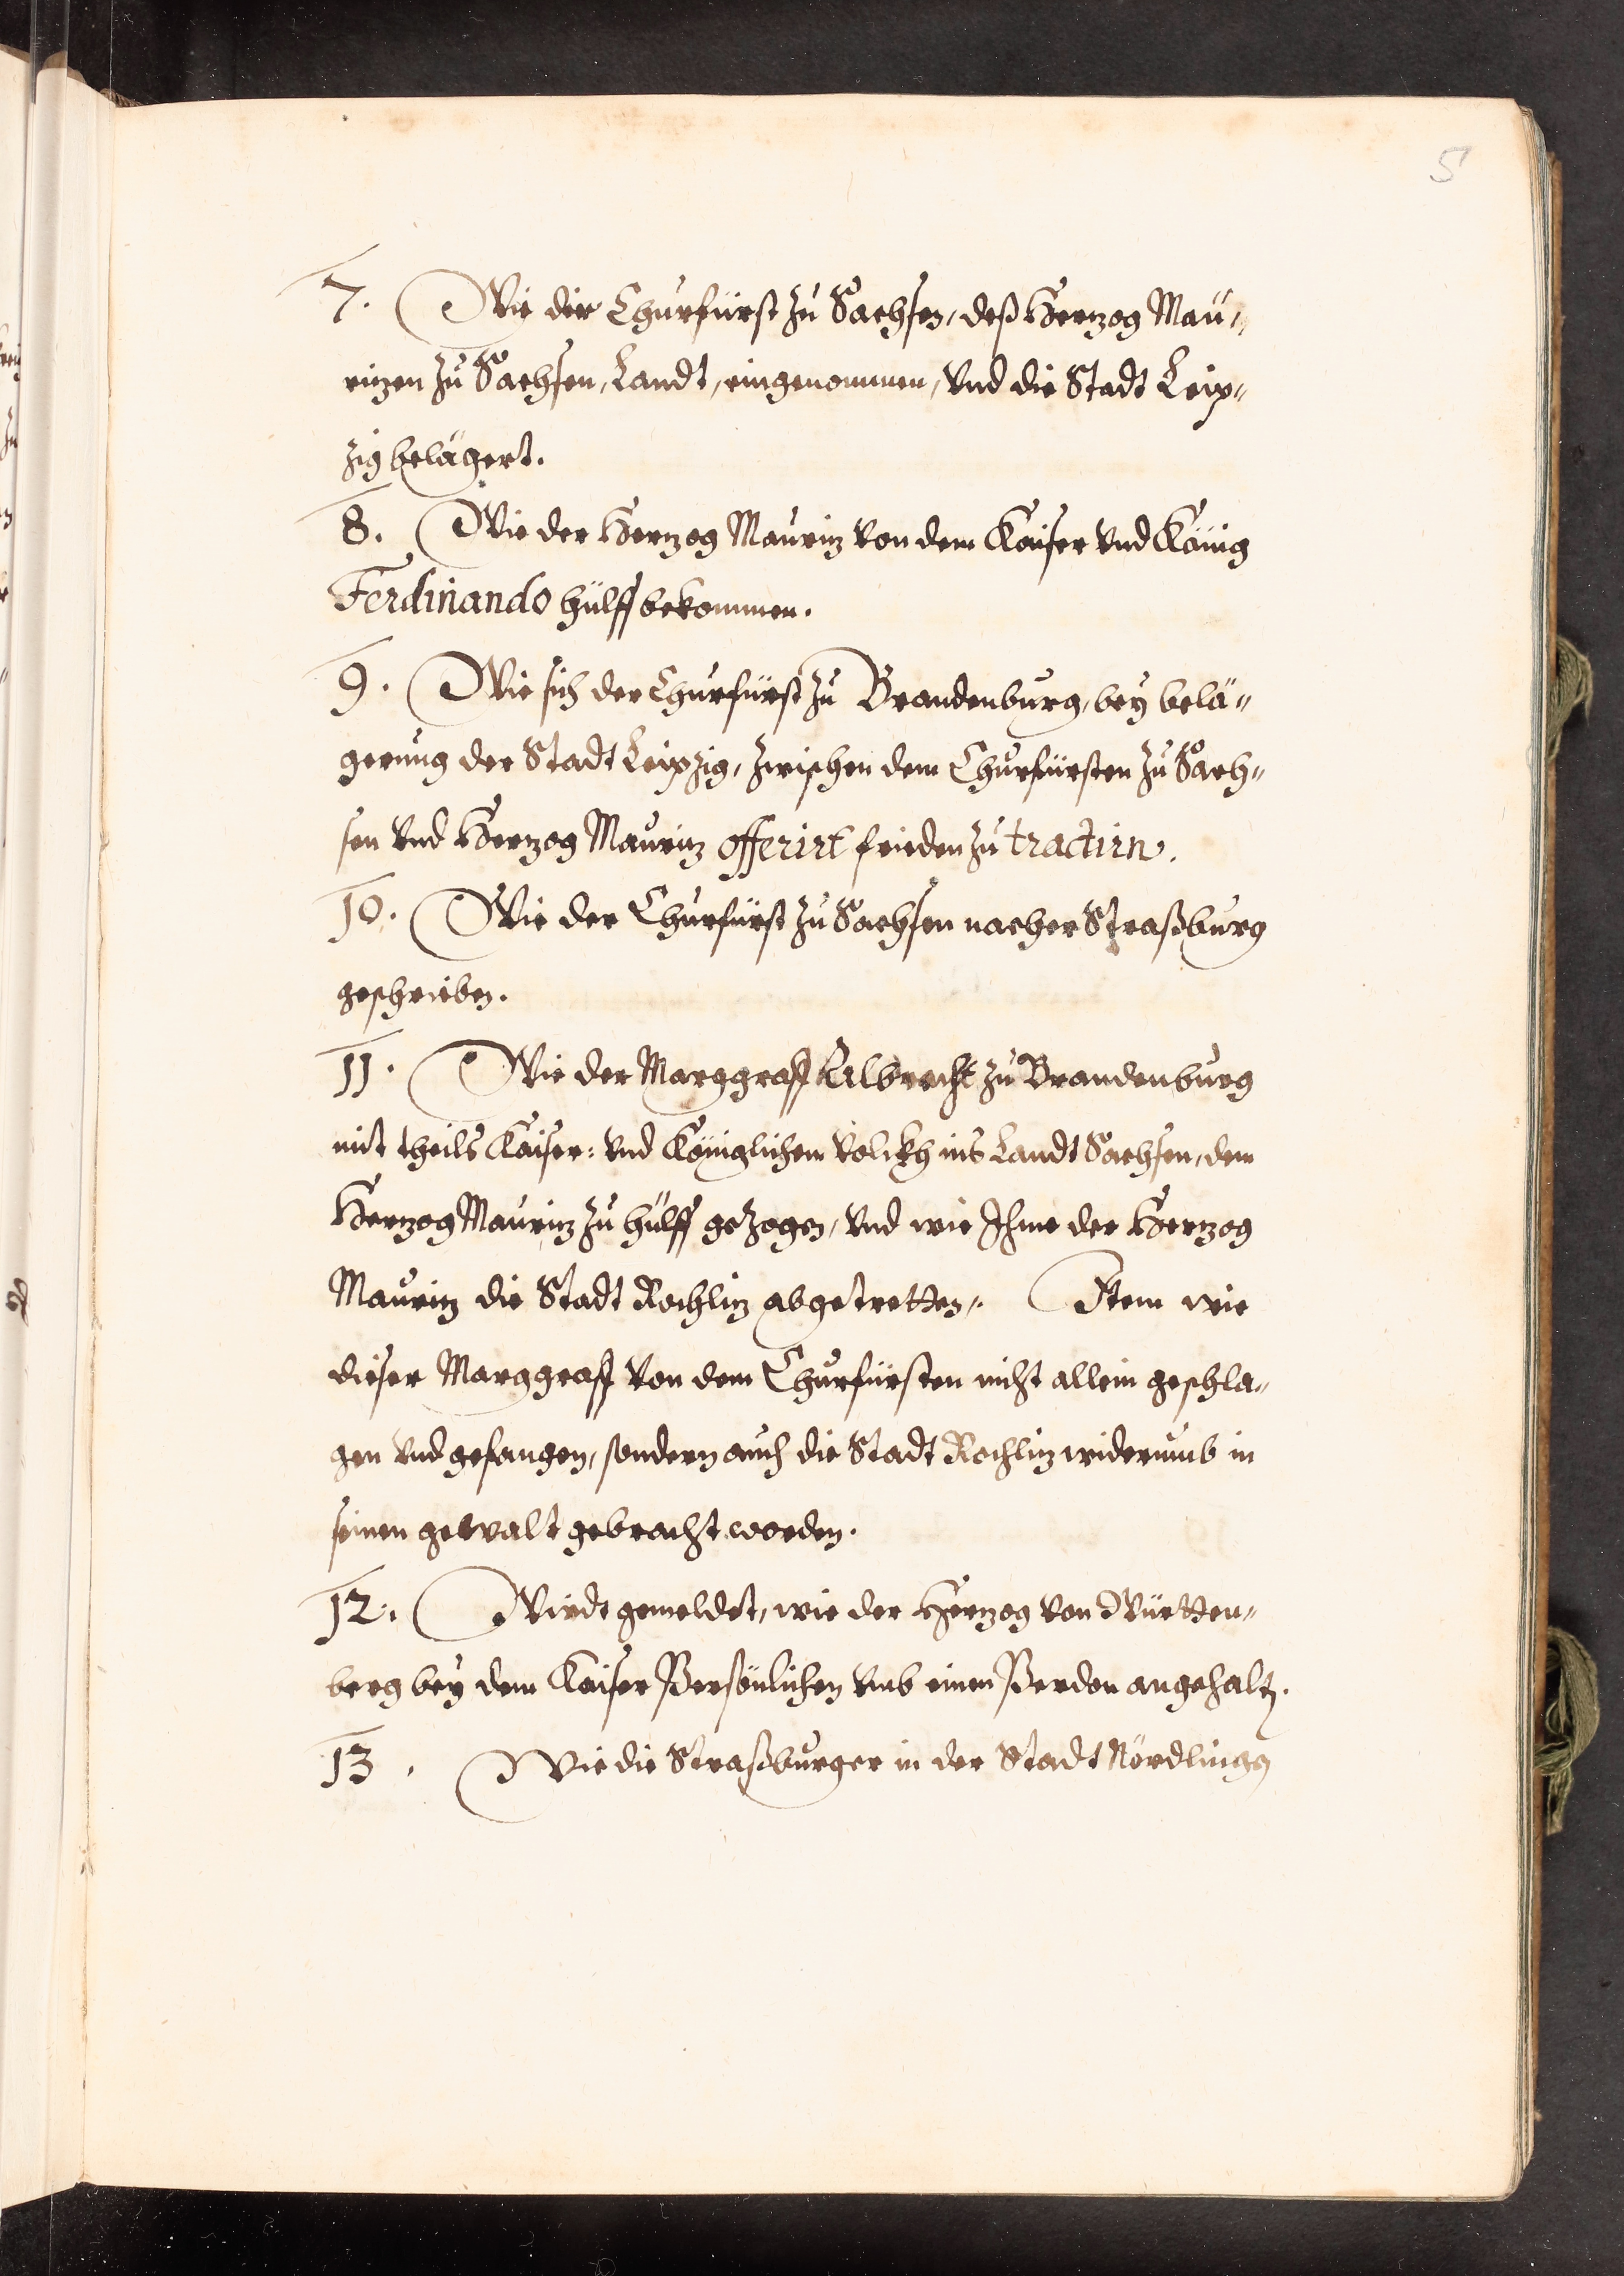 5
7. Wie der Churfürst zu Sachsen, deß Hertzog Mau„
ritzen zu Sachsen, Landt, eingenommen, vnd die Stadt Leip„
zig belägert.
8. Wie der Hertzog Mauritz von dem Kaiser vnd König
Ferdinando hülff bekommen.
9. Wie sich der Churfürst zu Brandenburg, bey belä„
gerung der Stadt Leipzig, zwischen dem Churfürsten zu Sach„
sen vnd Hertzog Mauritz offerirt frieden zu tractirn.
10. Wie der Churfürst zu Sachsen nacher Straßburg
geschrieben.
11. Wie der Marggraff Albrecht zu Brandenburg
mit theils Kaiser: vnd Königlichem Volckh ins Landt Sachsen, dem
Hertzog Mauritz zu hülff gezogen, vnd wie Ihme der Hertzog
Mauritz die Stadt Rochlitz abgetretten. Item wie
dieser Marggraff von dem Churfürsten nicht allein geschla„
gen vnd gefangen, sondern auch die Stadt Rochlitz widerumb in
seinen gewalt gebracht worden.
12. Wirdt gemeldet, wie der Hertzog von Württen„
berg bey dem Kaiser Persönlichen vmb einen Perdon angehalten.
13. Wie die Straßburger in der Stadt Nördlingen